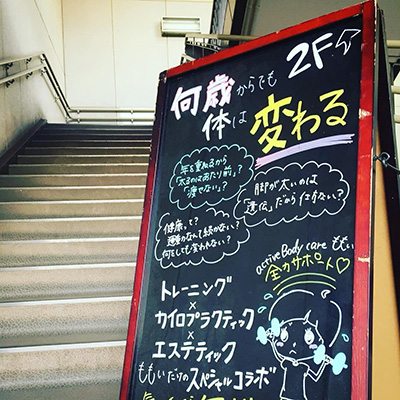 2F
何歳からでも
体は変わる
年を重ねるから
「太るのはあたり前」?
「痩せない」?
脚が太いのは
「遺伝」だから仕方ない?
健康って?
運動なんて続かない?
何をしても変われない?
activeBody care ももい
全力サポート♡
トレーニング
×
カイロプラクティック
×
エステティック
ももいだけのスペシャルコラボ